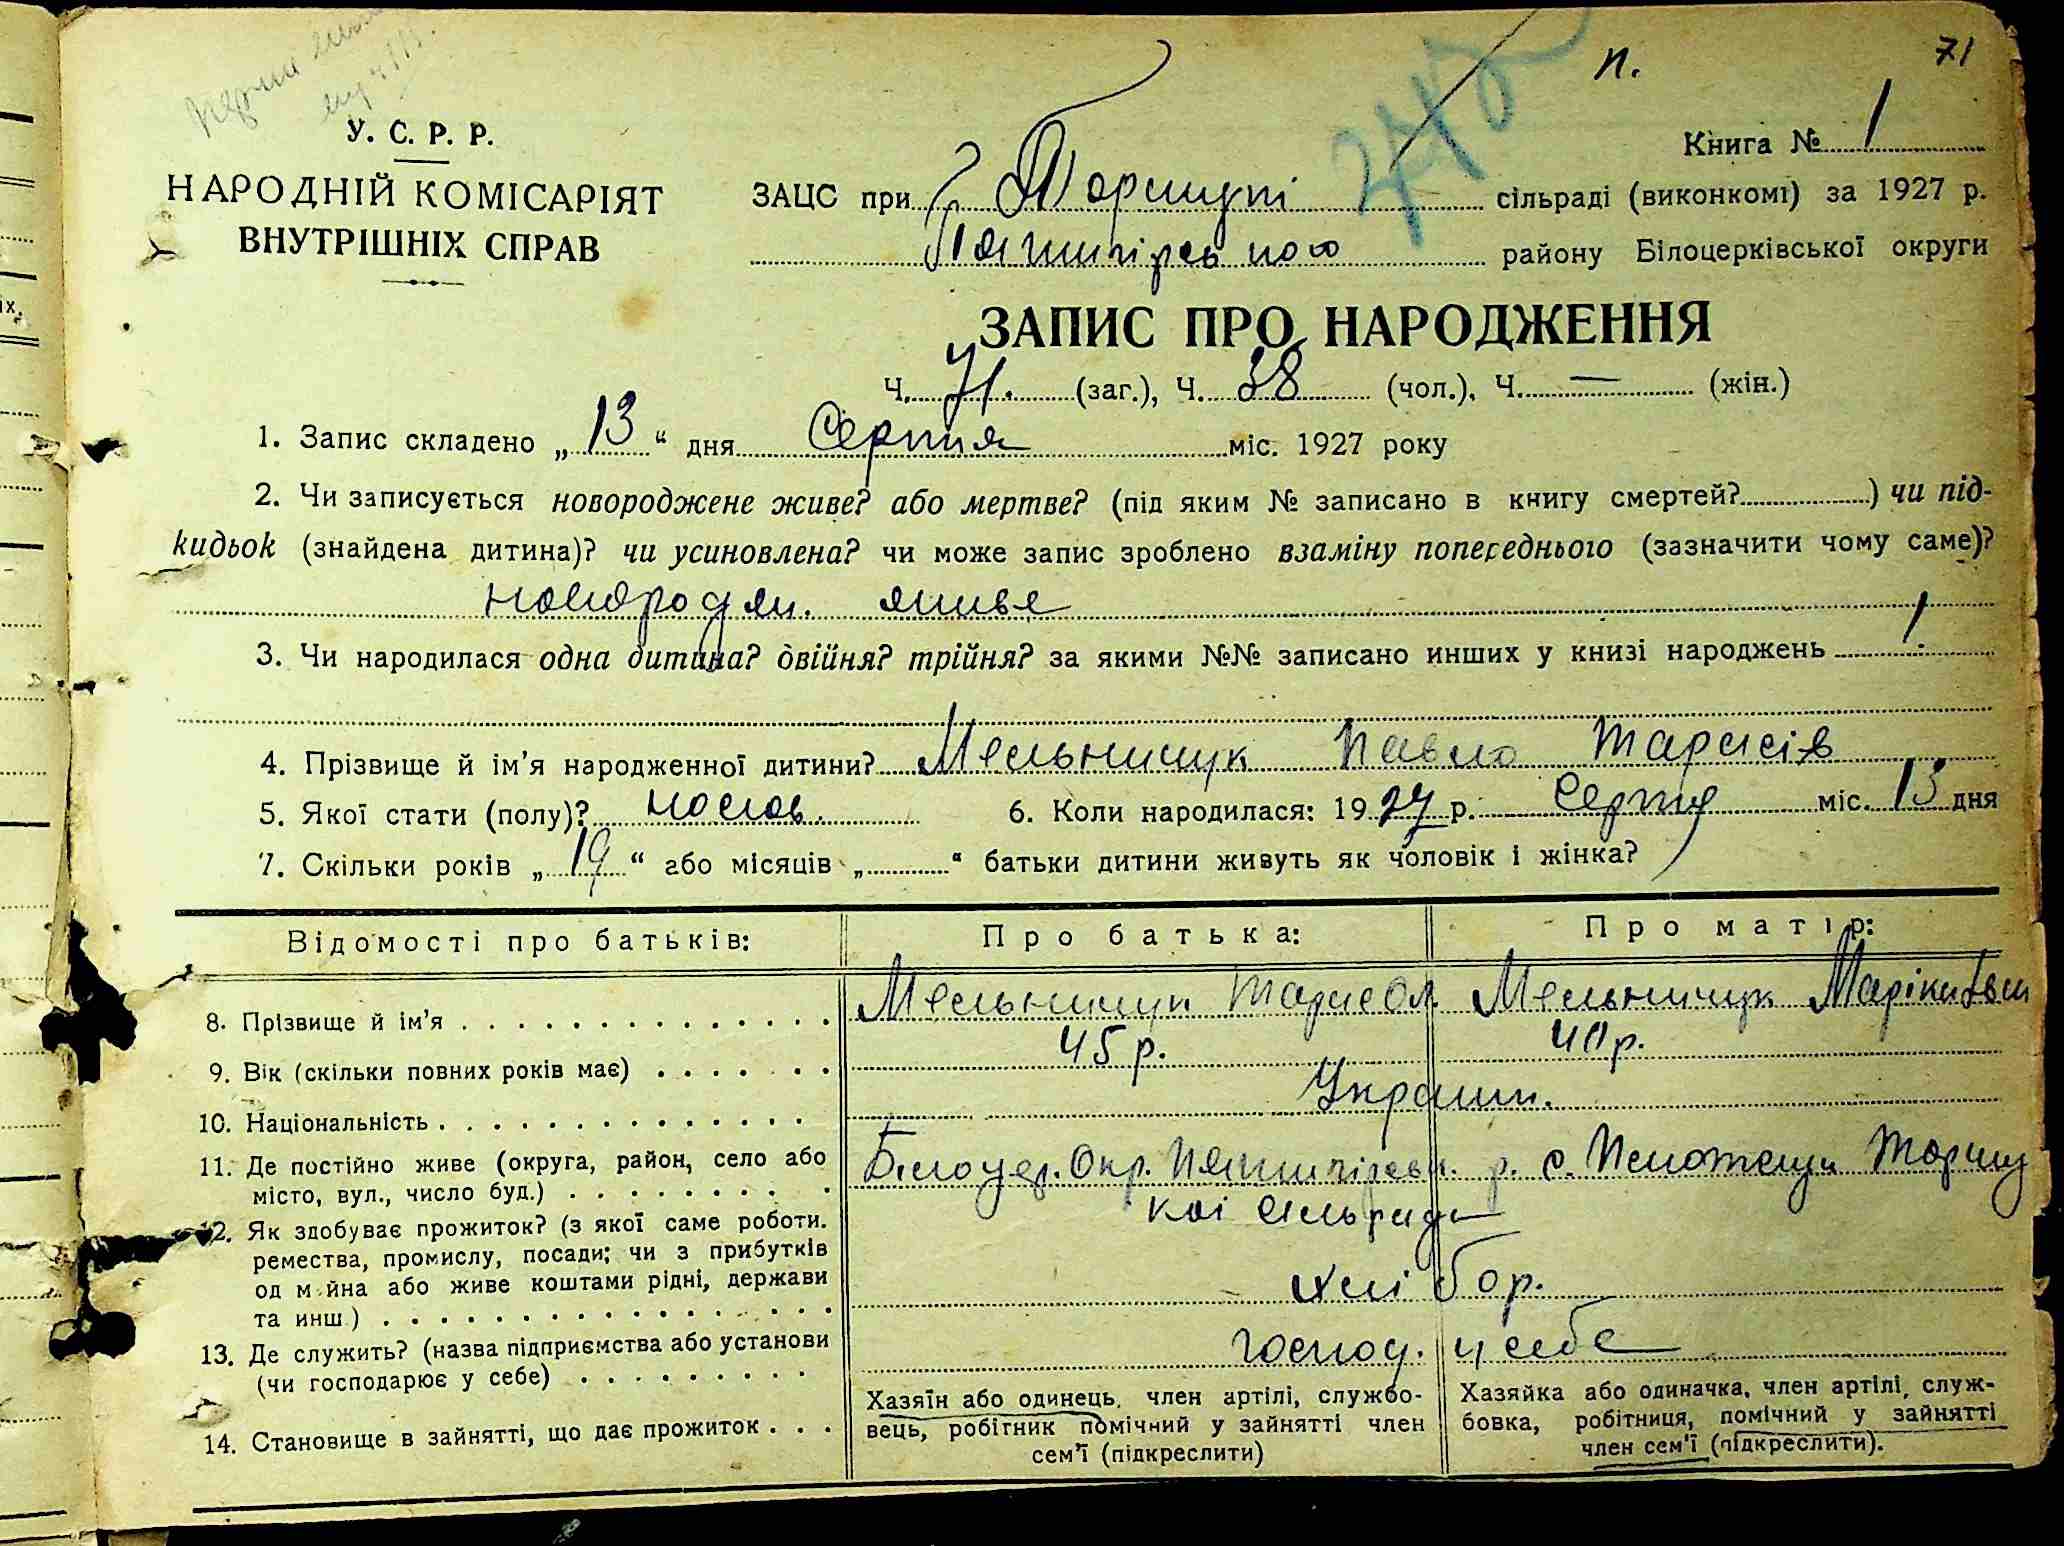 п.
71
У. С. Р. Р.
НАРОДНІЙ КОМІСАРІЯТ
ВНУТРІШНІХ СПРАВ
Книга № 1
ЗАЦС при Торчицкі сільраді (виконкомі) за 1927 р.
району Білоцерківської округи
ЗАПИС ПРО НАРОДЖЕННЯ
Ч. 71. (заг.), Ч. 38 (чол.), Ч. — (жін.)
1. Запис складено „ 13 “ дня Серпня міс. 1927 року
2. Чи записується новороджене живе? або мертве? (під яким № записано в книгу смертей? ) чи під-
кидьок (знайдена дитина)? чи усиновлена? чи може запис зроблено взаміну попереднього (зазначити чому саме)?
новородж. живе
3. Чи народилася одна дитина? двійня? трійня? за якими №№ записано инших у книзі народжень 1.
4. Прізвище й ім’я народженної дитини? Мельничук Павло Тарасів
5. Якої стати (полу)? чолов. 6. Коли народилася: 1927 р. Серпня міс. 13 дня
7. Скільки років „ 19 “ або місяців „ “ батьки дитини живуть як чоловік і жінка?
Відомості про батьків:
Про батька:
Про матір:
8. Прізвище й ім’я
Мельничук Тарас
Мельничук
9. Вік (скільки повних років має)
45 р.
40 р.
10. Національність
Украин.
11. Де постійно живе (округа, район, село або
місто, вул., число буд.)
Білоцер. Окр. р. с.
кої сільради
12. Як здобуває прожиток? (з якої саме роботи.
ремества, промислу, посади; чи з прибутків
од м йна або живе коштами рідні, держави
та инш.)
хлібор.
13. Де служить? (назва підприємства або установи
(чи господарює у себе)
господ. у себе
14. Становище в зайнятті, що дає прожиток
Хазяїн або одинець, член артілі, службо-
вець, робітник помічний у зайнятті член
сем’ї (підкреслити)
Хазяйка або одиначка, член артілі, служ-
бовка, робітниця, помічний у зайнятті
член сем’ї (підкреслити).